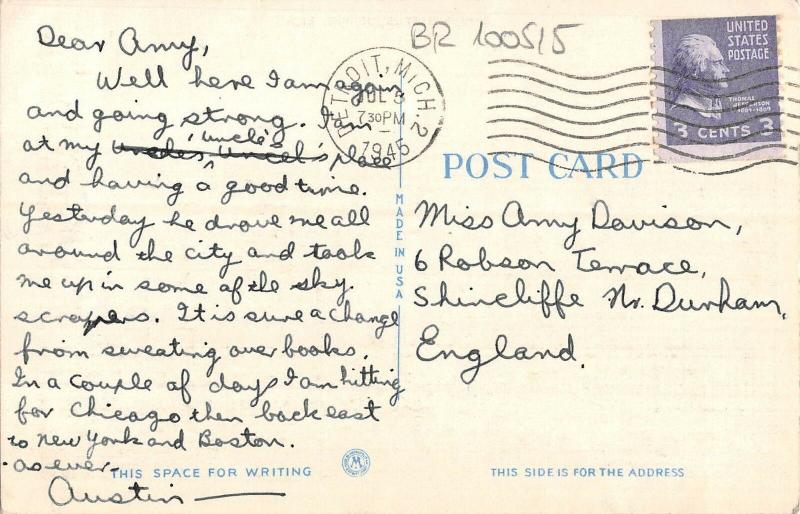 Dear Amy,
Well here I am again
and going strong. I am
at my uncle's place
and having a good time.
Yesterday he drove me all
around the city and took
me up in some of the sky
scrapers. It is sure a change
from sweating over books.
In a couple of days I am hitting
for Chicago then back east
to New York and Boston.
as ever-
Austin
THIS SPACE FOR WRITING
MADE IN USA
BR 100515
DETROIT, MICH. 2
JUL 3
7 30 PM
1945
UNITED
STATES
POSTAGE
THOMAS
JEFFERSON
1801-1809
3 CENTS 3
POST CARD
Miss Amy Davison,
6 Robson Terrace,
Shincliffe Nr. Durham,
England.
THIS SIDE IS FOR THE ADDRESS